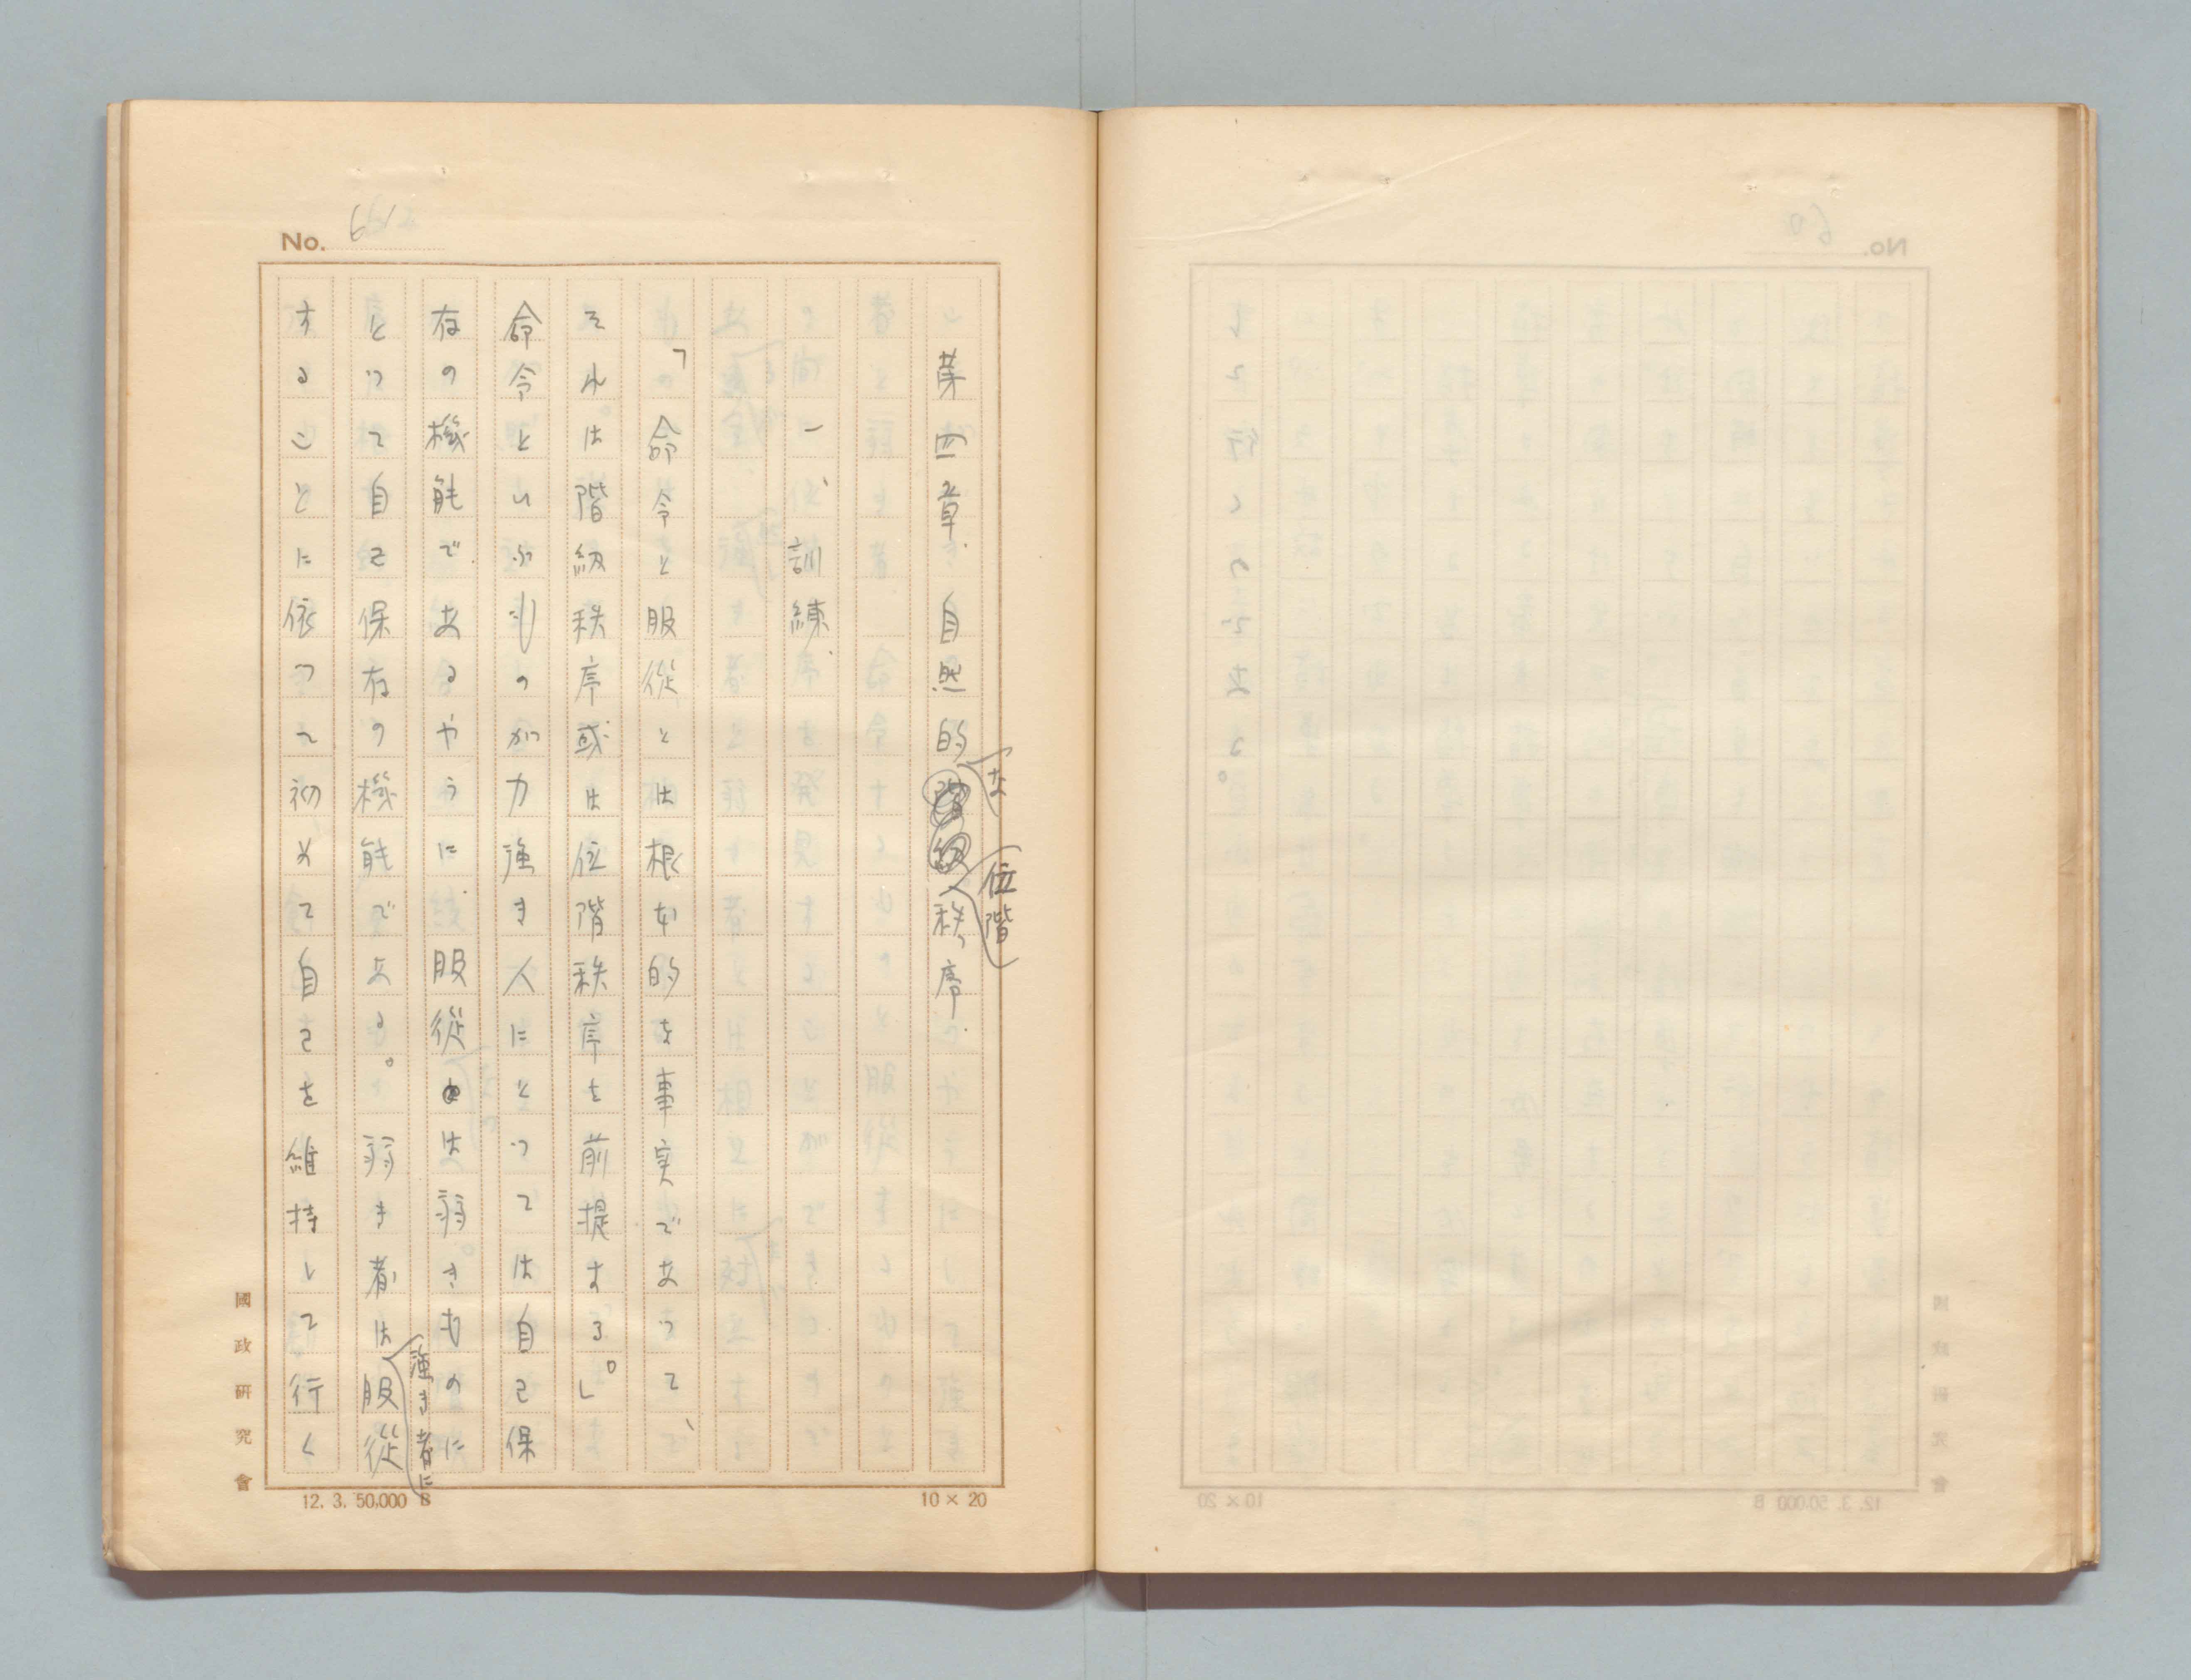 No. 61
第四章 自然的な位階秩序
一、訓練
「命令と服從とは根本的な事実であつて、
それは階級秩序或は位階秩序を前提する。」
命令といふものが力強き人にとつては自己保
存の機能であるやうに、服從は弱きものに
とつて自己保存の機能である。弱き者は強き者に服從
することに依つて初めて自己を維持して行く
國政研究會
12. 3. 50,000 B
10 × 20